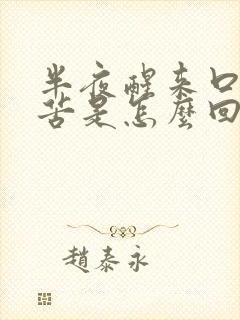 半夜醒来口
苦是怎麼回
趙泰永